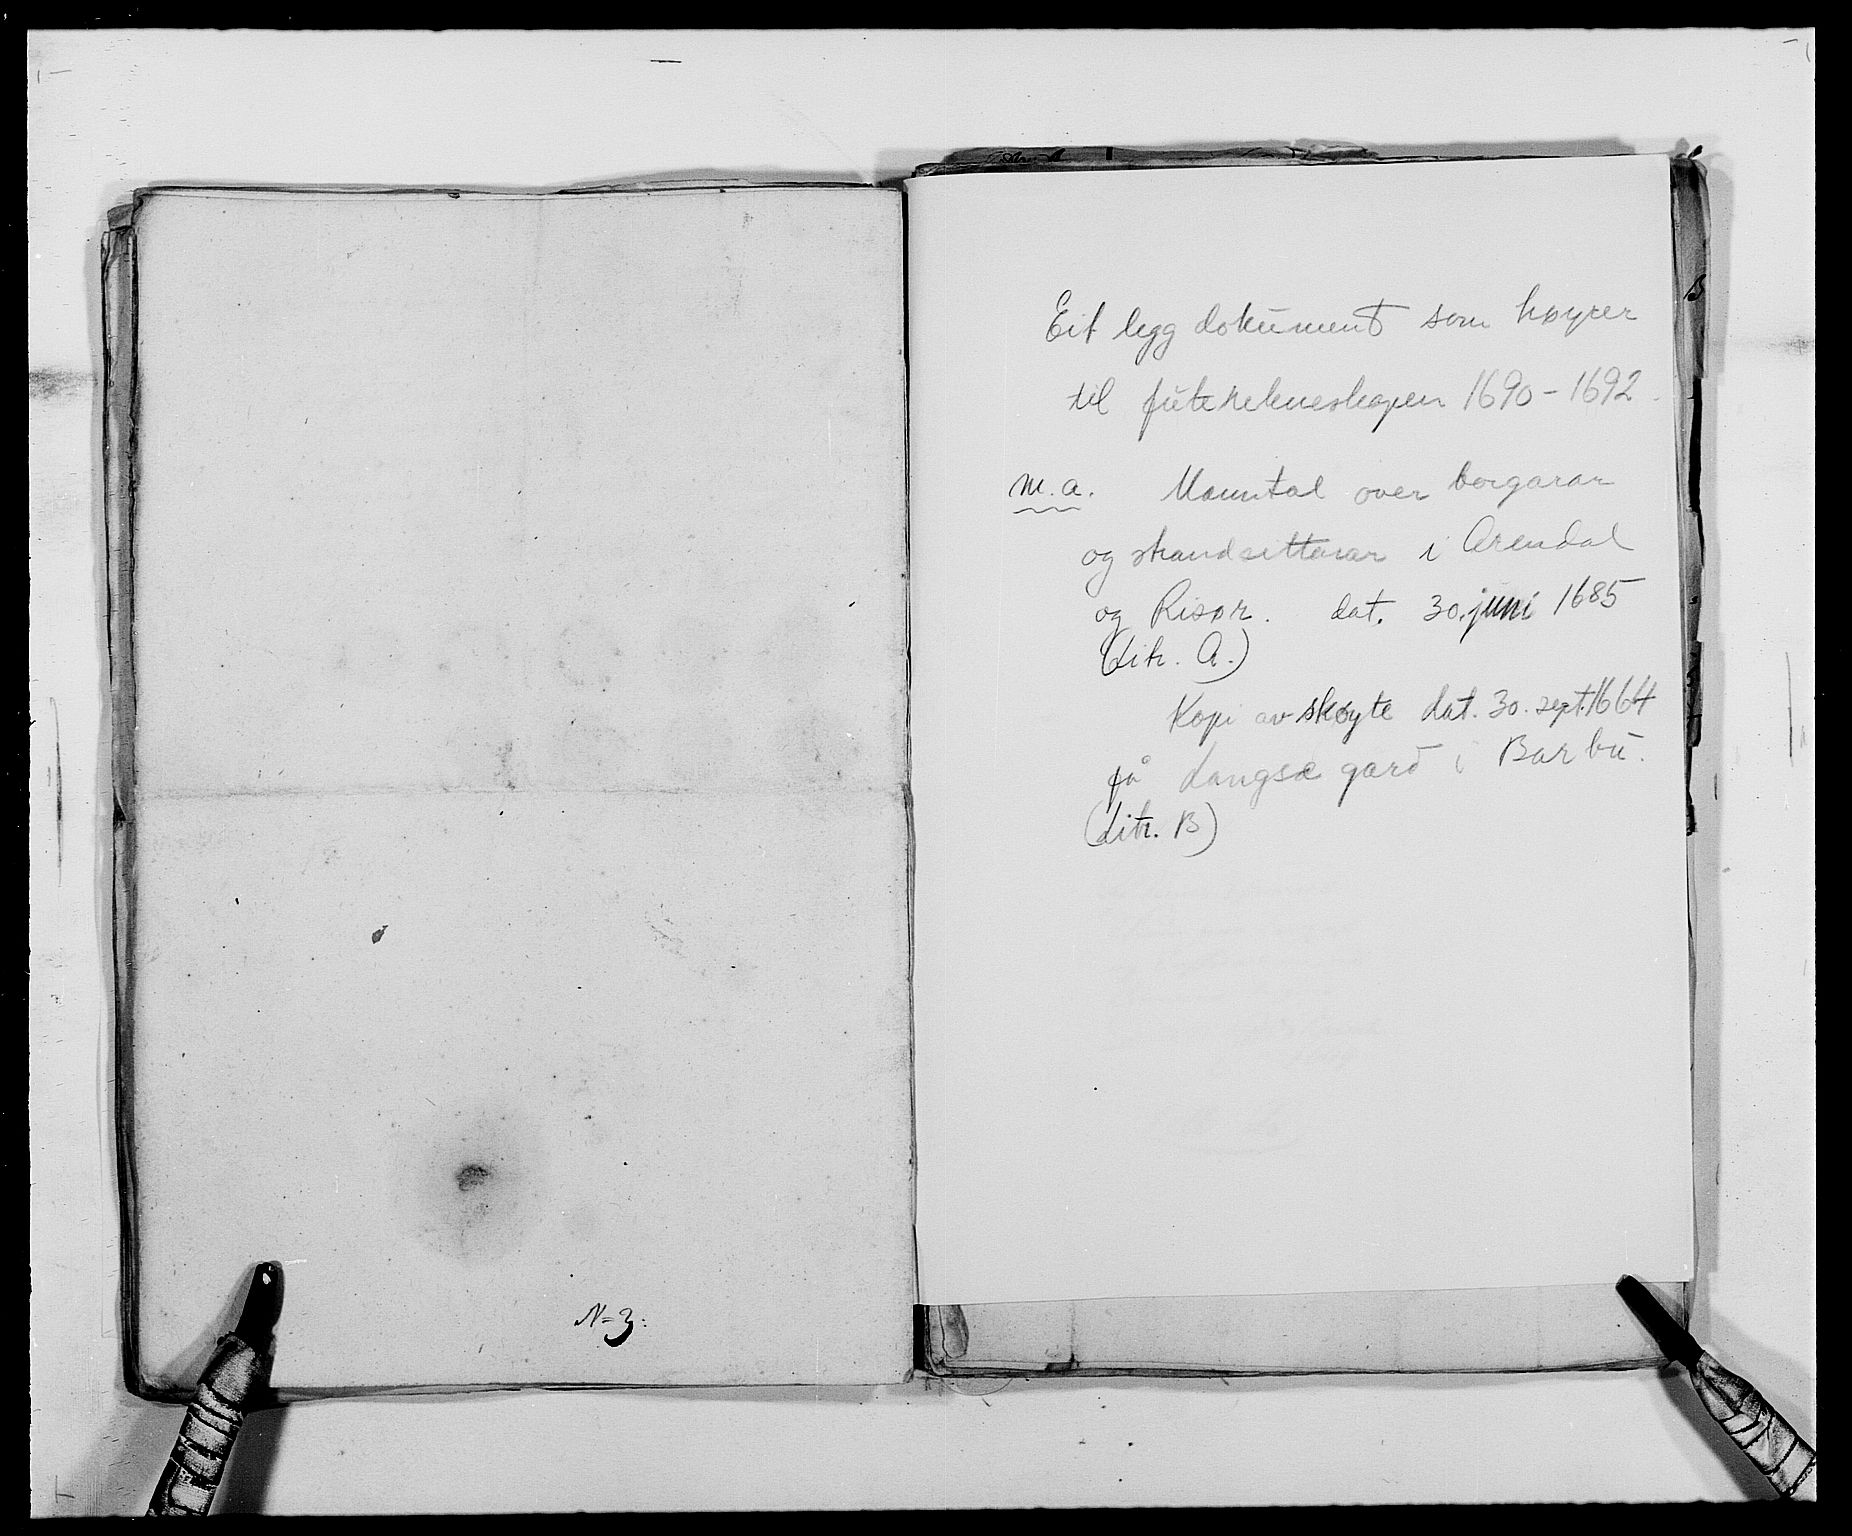 N=3:
Eit legg dokument som høyrer
til futerekneskapen 1690-1692.
m.a. Manntal over borgarar
og strandsittarar i Arendal
og Risør. dat. 30. juni 1685
(Litr. A.)
Kopi av skøyte dat. 30. sept. 1664
på Langsæ gard i Barbu.
(Litr. B)
B